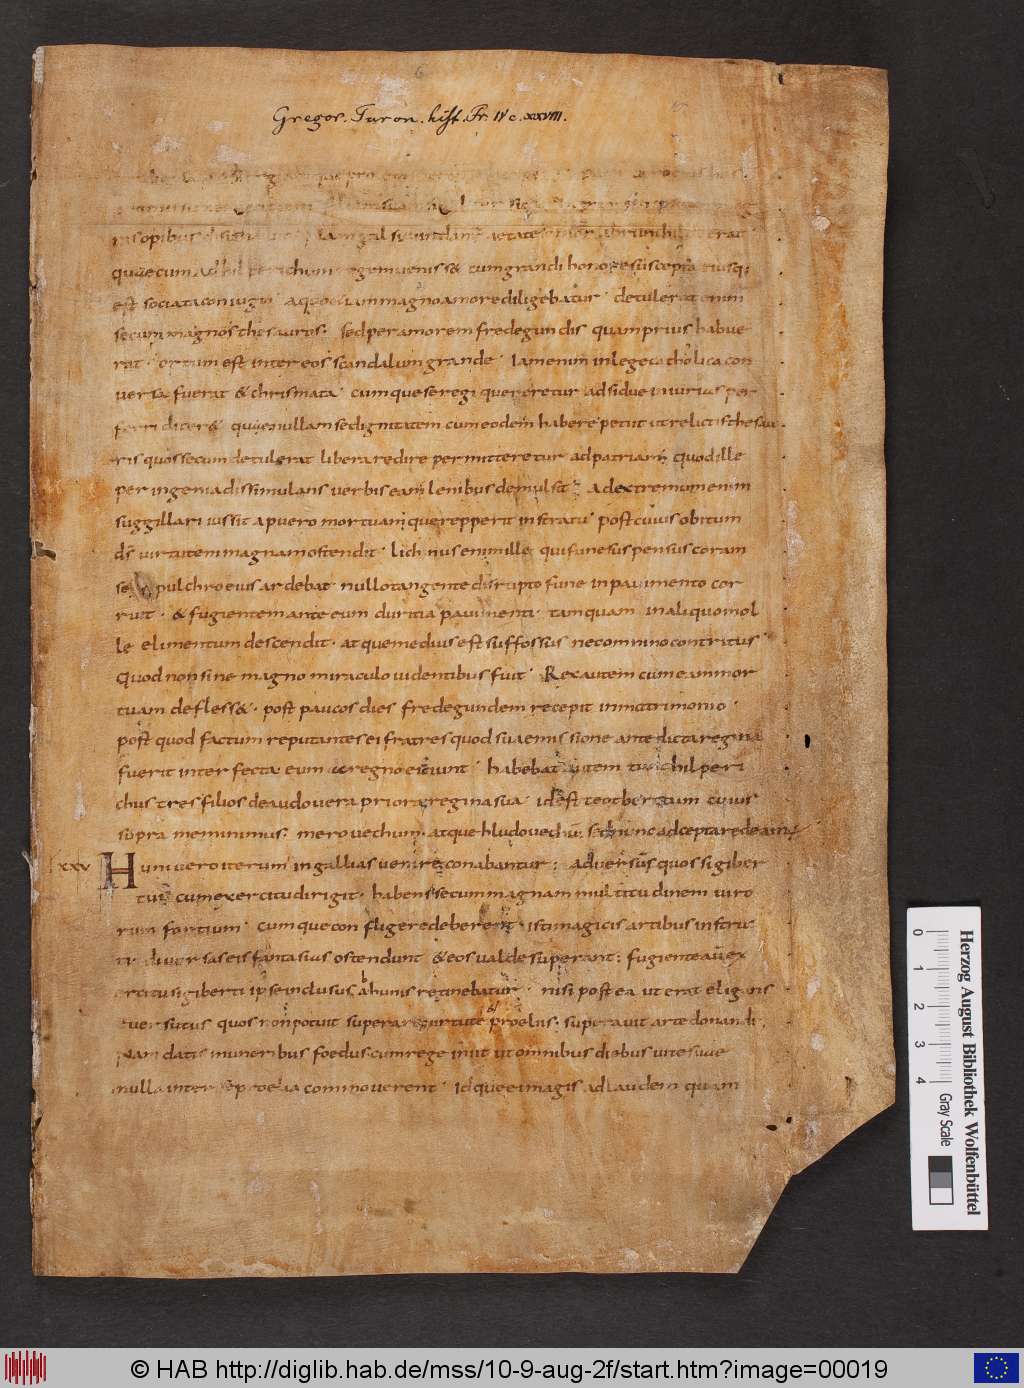 6
Gregor. Turon. hist. Fr. IV c. xxVIII.
nis opibus
quae cum ad chilperichum regem venisset cum grandi honore suscepta eiusq;
est sociata coniugio a quo etiam magno amore diligebatur · detulerat enim
secum magnos thesauros · sed per amorem fredegundis quam prius habue
rat · ortum est inter eos scandalum grande · Iam enim in lege catholica con
versa fuerat & chrismata · cumque se regi quereretur adsidue iniurias per
ferri diceret quae nullam se dignitatem cum eodem habere petiit ut relictis thesau
ris quos secum detulerat libera redire permitteretur ad patriam quod ille
per ingenia dissimulans verbis eam lenibus demulsit · ad extremum enim
suggillari iussit a puero mortuam que repperit in stratu post cuius obitum
ds virtutem magnam ostendit · lichinus enim ille qui fune suspensus coram
sepulchro eius ardebat nullo tangente disrupto fune in pavimento cor
ruit · & fugientem ante eum duritia pavimenti · tamquam in aliquo mol
le elimentum descendit · atque medius est suffossus nec omnino contritus
Quod non sine magno miraculo videntibus fuit · Rex autem cum eam mor
tuam deflesset · post paucos dies fredegundem recepit in matrimonio ·
post quod factum reputantes ei fratres quod sua emissione antedicta regina
fuerit interfecta eum a regno eiciunt · habebat autem tunc chilperi
chus tres filios de audovera priora regina sua id est teotbertum cuius
supra meminimus · merovechum · atque hludovechū sed nunc ad cepta redeamus
xxv Huni vero iterum in gallias venire conabantur · adversus quos sigiber
tus cum exercitu dirigit · habens secum magnam multitudinem viro
rum fortium · cumque confligere deberent isti magicis artibus instruc
ti diversas eis fantasias ostendunt & eos valde superant : fugiente autē ex
ercitu sigiberti ipse inclusus ab hunis retinebatur · nisi postea ut erat eligans
& versutus quos non potuit superare virtute proelii · superavit arte donandi
Nam datis muneribus foedus cum rege iniit ut omnibus diebus vite suae
nulla inter se proelia commoverent · Idque ei magis ad laudem quam
Herzog August Bibliothek Wolfenbüttel
0 1 2 3 4 Gray Scale
© HAB http://diglib.hab.de/mss/10-9-aug-2f/start.htm?image=00019